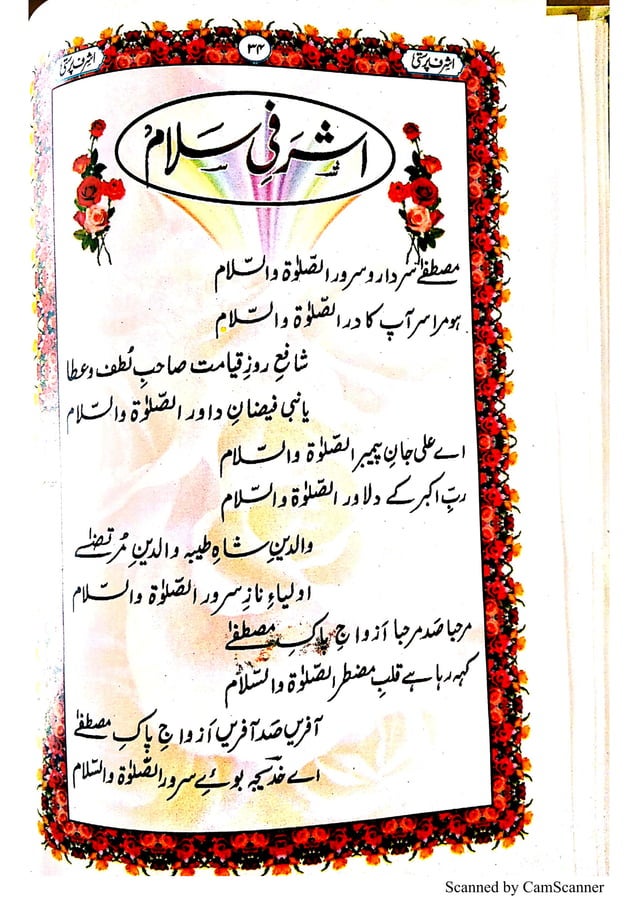 اشرف پرستی
۳۴
اشرف پرستی
اشرفی سلام
مصطفےٰ سردار و سرور الصّلوٰۃ والسّلام
ہو مرا سر آپ کا در الصّلوٰۃ والسّلام
شافعِ روزِ قیامت صاحبِ لُطف و عطا
یا نبی فیضانِ داور الصّلوٰۃ والسّلام
اے علی جانِ پیمبر الصّلوٰۃ والسّلام
ربِّ اکبر کے دلاور الصّلوٰۃ والسّلام
والدینِ شاہِ طیبہ والدینِ مُرتضےٰ
اولیاءِ نازِ سرور الصّلوٰۃ والسّلام
مرحبا صَد مرحبا اَزواجِ پاکِ مصطفےٰ
کہہ رہا ہے قلبِ مضطر الصّلوٰۃ والسّلام
آفریں صَد آفریں اَزواجِ پاکِ مصطفےٰ
اے خدیجہ بوئے سرور الصّلوٰۃ والسّلام
Scanned by CamScanner